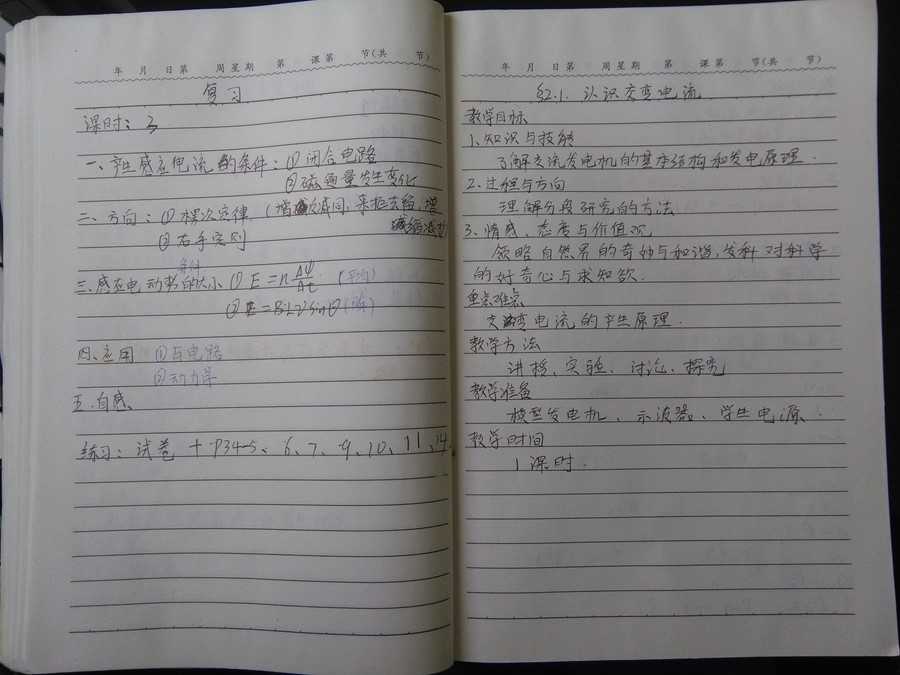 年 月 日第 周星期 第 课第 节(共 节)
复习
课时：3
一、产生感应电流的条件：① 闭合电路
② 磁通量发生变化
二、方向：① 楞次定律（增反减同，来拒去留，增缩减扩
② 右手定则
三、感应电动势的大小 ① E=n ΔΦ/Δt（平均）
② E=BLVsinθ（瞬）
四、应用 ①与电路
②动力学
五、自感
练习：试卷 + P34-5、6、7、9、10、11、14.
年 月 日第 周星期 第 课第 节(共 节)
§2.1. 认识交变电流
教学目标
1、知识与技能
了解交流发电机的基本结构和发电原理.
2. 过程与方向
理解分段研究的方法
3、情感、态度与价值观
领略自然界的奇妙与和谐，发科对科学
的好奇心与求知欲.
重点难点
交变电流的产生原理.
教学方法
讲授、实验、讨论、探究
教学准备
模型发电机、示波器、学生电源
教学时间
1课时.